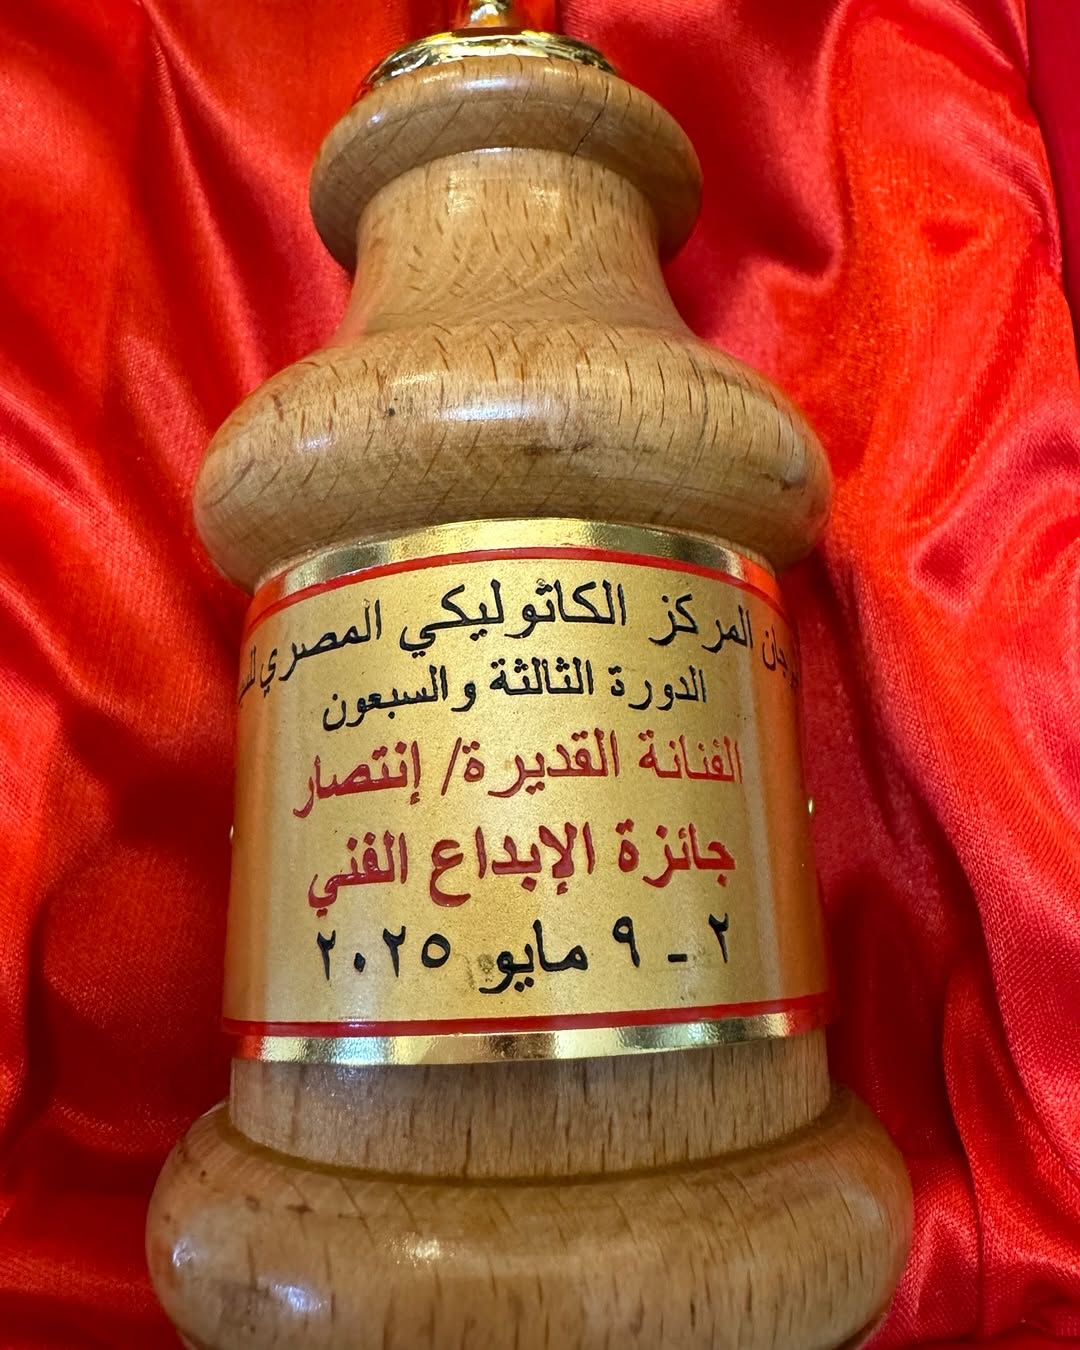 المركز الكاثوليكي المصري
الدورة الثالثة والسبعون
الفنانة القديرة/ إنتصار
جائزة الإبداع الفني
٢ - ٩ مايو ٢٠٢٥